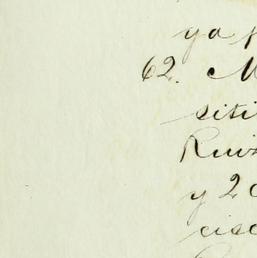 ya
62. M
siti
Ruiz
y 2
cisc